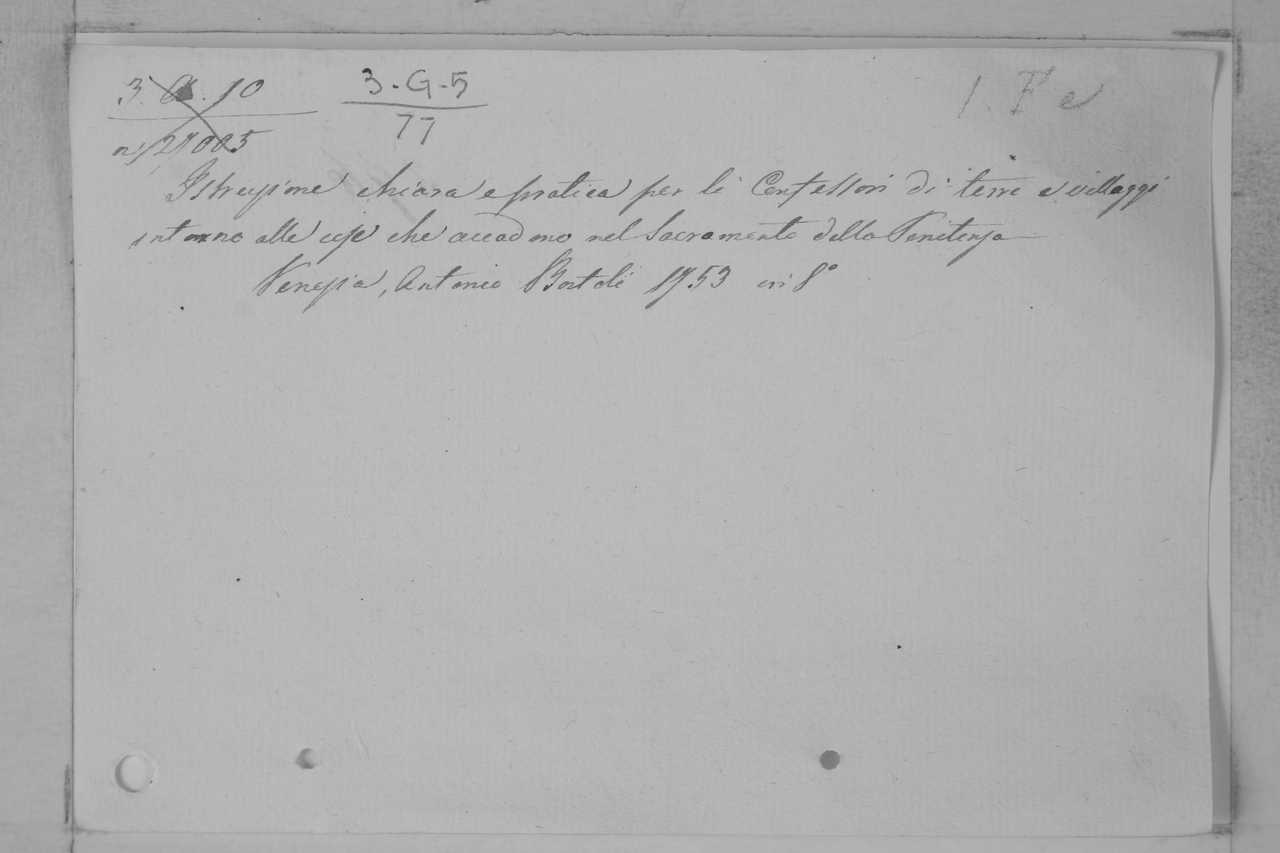 3. A. 10
3-G-5
77
1. Fe
n, 27005
Istruzione chiara e pratica per li Confessori di terre e villaggi
intorno alle cose che accadono nel Sacramento della Penitenza
Venezia, Antonio Bortoli 1753 in 8°